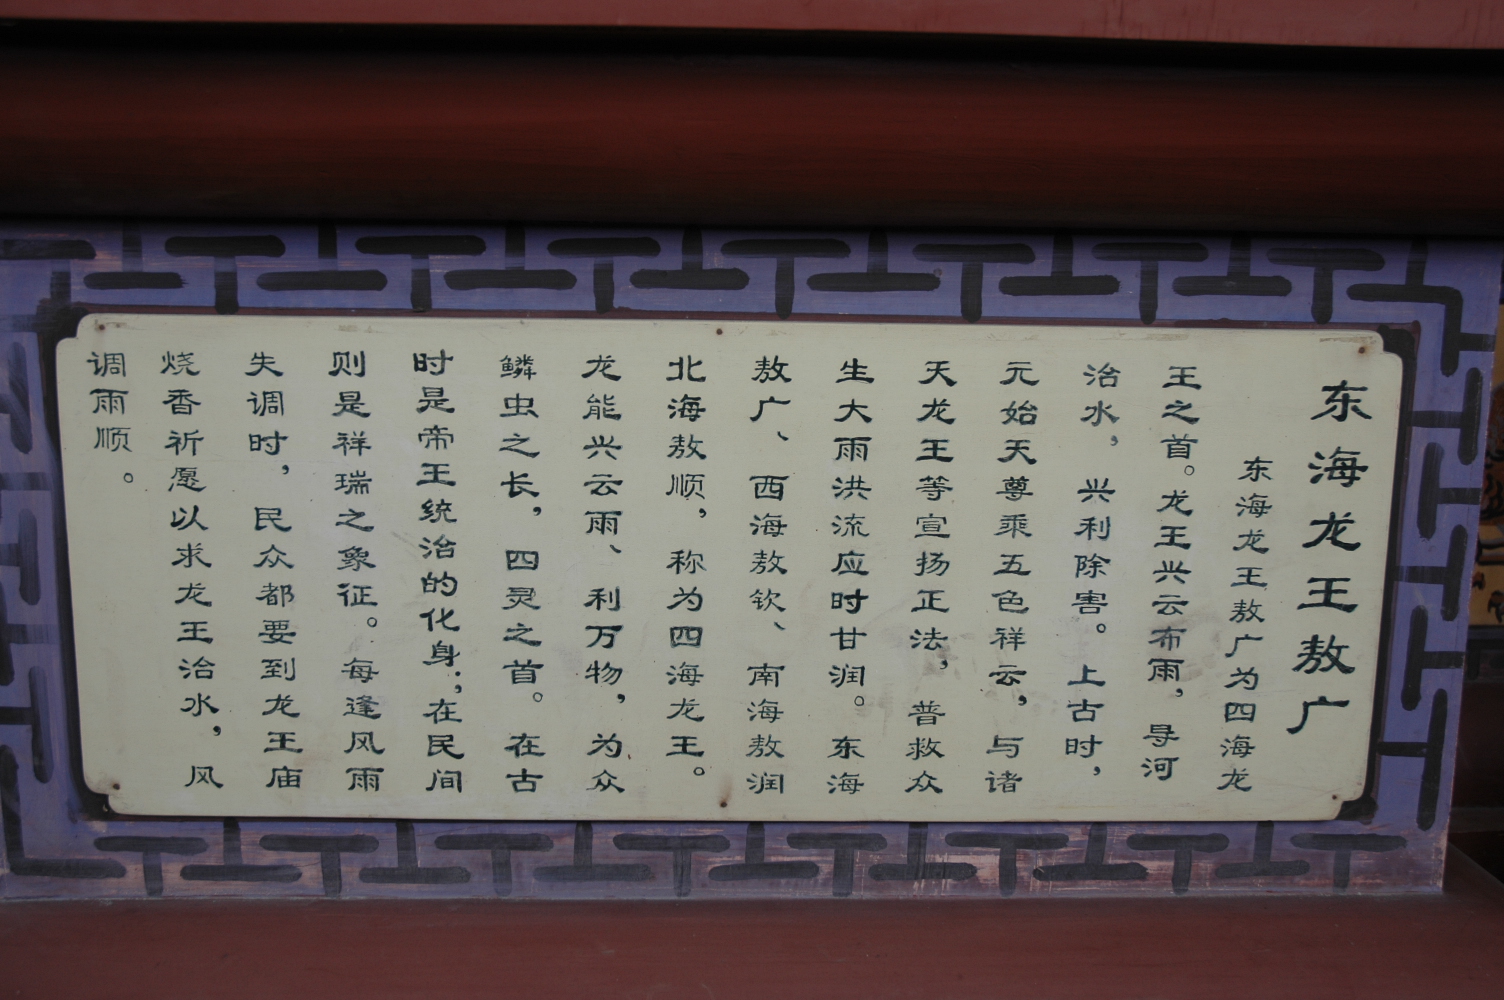 东海龙王敖广
东海龙王敖广为四海龙
王之首。龙王兴云布雨，寻河
治水，兴利除害。上古时，
元始天尊乘五色祥云，与诸
天龙王等宣扬正法，普救众
生大雨洪流应时甘润。东海
敖广、西海敖钦、南海敖润
北海敖顺，称为四海龙王。
龙能兴云雨、利万物，为众
鳞虫之长，四灵之首。在古
时是帝王统治的化身；在民间
则是祥瑞之象征。每逢风雨
失调时，民众都要到龙王庙
烧香祈愿以求龙王治水，风
调雨顺。